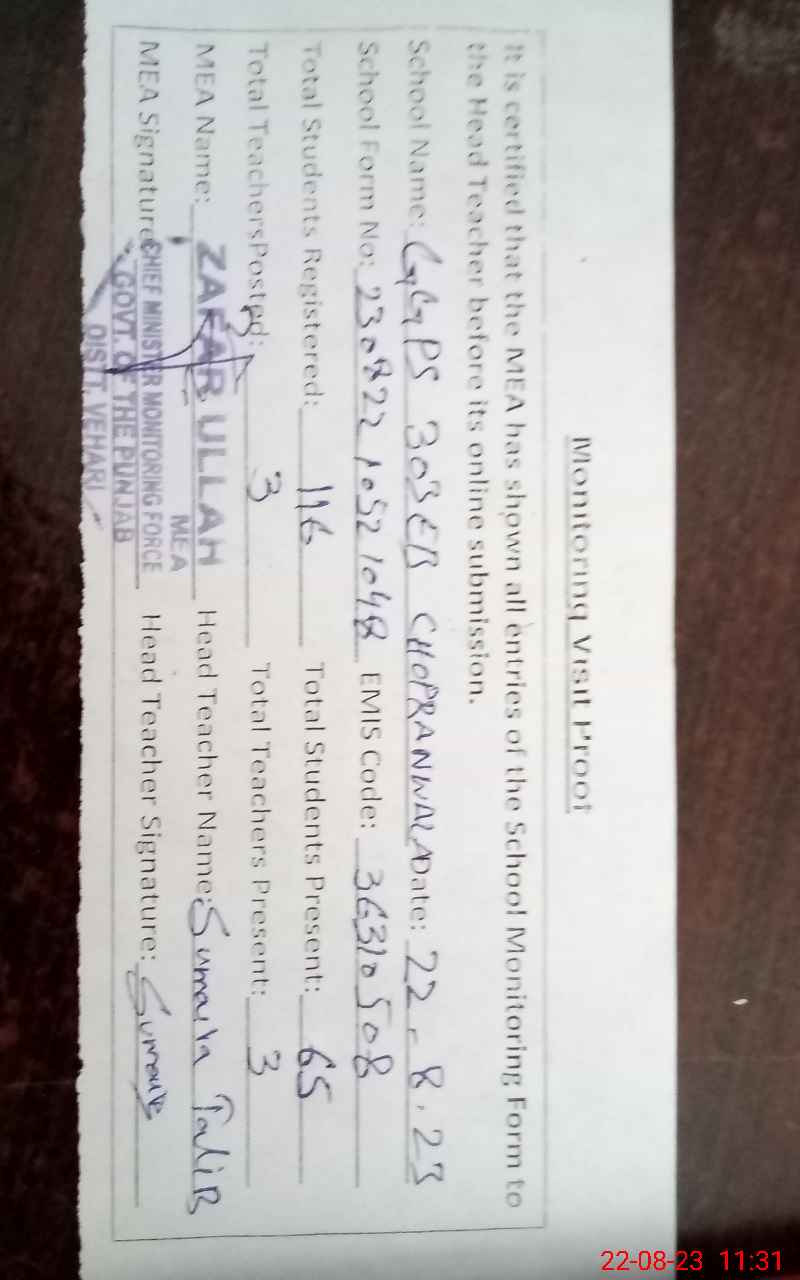 Monitoring Visit Proof
It is certified that the MEA has shown all entries of the School Monitoring Form to
the Head Teacher before its online submission.
School Name: GGPS 303EB CHOPRANWALA Date: 22-8-23
School Form No: 23082210521048 EMIS Code: 36310508
Total Students Registered: 116 Total Students Present: 65
Total TeachersPosted: 3 Total Teachers Present: 3
MEA Name: ZAFAR ULLAH Head Teacher Name: Sumaira TaliB
MEA
MEA Signature: Head Teacher Signature: Sumaira
CHIEF MINISTER MONITORING FORCE
GOVT. OF THE PUNJAB
DISTT. VEHARI
22-08-23 11:31